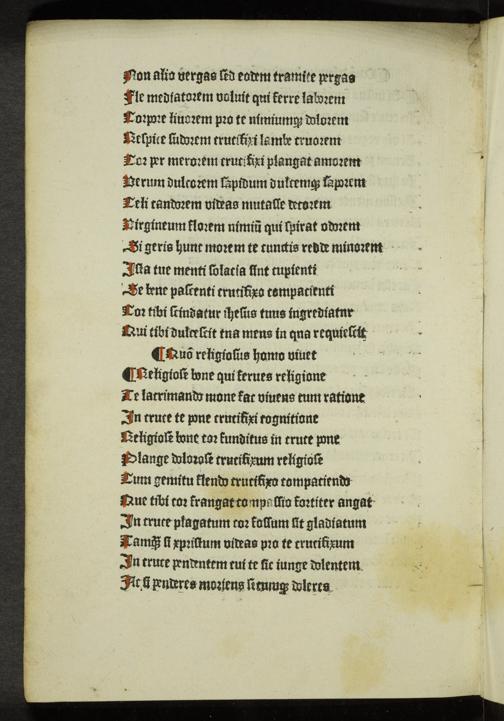 Non alio vergas sed eodem tramite pergas
Fle mediatorem voluit qui ferre laborem
Corpore liuorem pro te nimiumqȝ dolorem
Respice sudorem crucifixi lambe cruorem
Cor per merorem crucifixi plangat amorem
Verum dulcorem sapidum dulcemqȝ saporem
Celi candorem videas mutasse decorem
Virgineum florem nimiū qui spirat odorem
Si geris hunc morem te cunctis redde minorem
Ista tue menti solacia sint cupienti
Se bene pascenti crucifixo compacienti
Cor tibi scindatur ihesus tuus ingrediatur
Qui tibi dulcescit tua mens in qua requiescit
¶ Quō religiosus homo viuet
¶ Religiose bone qui serues religione
Te lacrimando mone fac viuens cum ratione
In cruce te pone crucifixi cognitione
Religiose bone cor funditus in cruce pone
Plange dolorose crucifixum religiose
Cum gemitu flendo crucifixo compaciendo
Que tibi cor frangat compassio fortiter angat
In cruce plagatum cor fossum sit gladiatum
Tamqȝ̄ si xpristum videas pro te crucifixum
In cruce pendentem cui te sic iunge dolentem
Ac si penderes moriens secumqȝ doleres